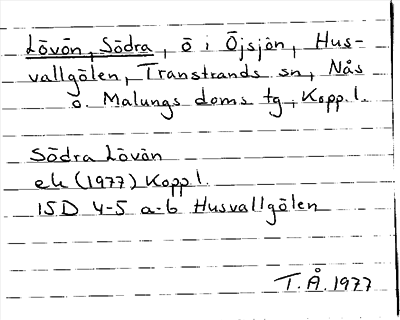 Lövön, Södra, ö i Öjsjön, Hus-
vallgölen, Transtrands sn, Nås
o. Malungs doms tg, Kopp. l.
Södra Lövön
ek (1977) Kopp l.
15D 4-5 a-b Husvallgölen
T. Å. 1977